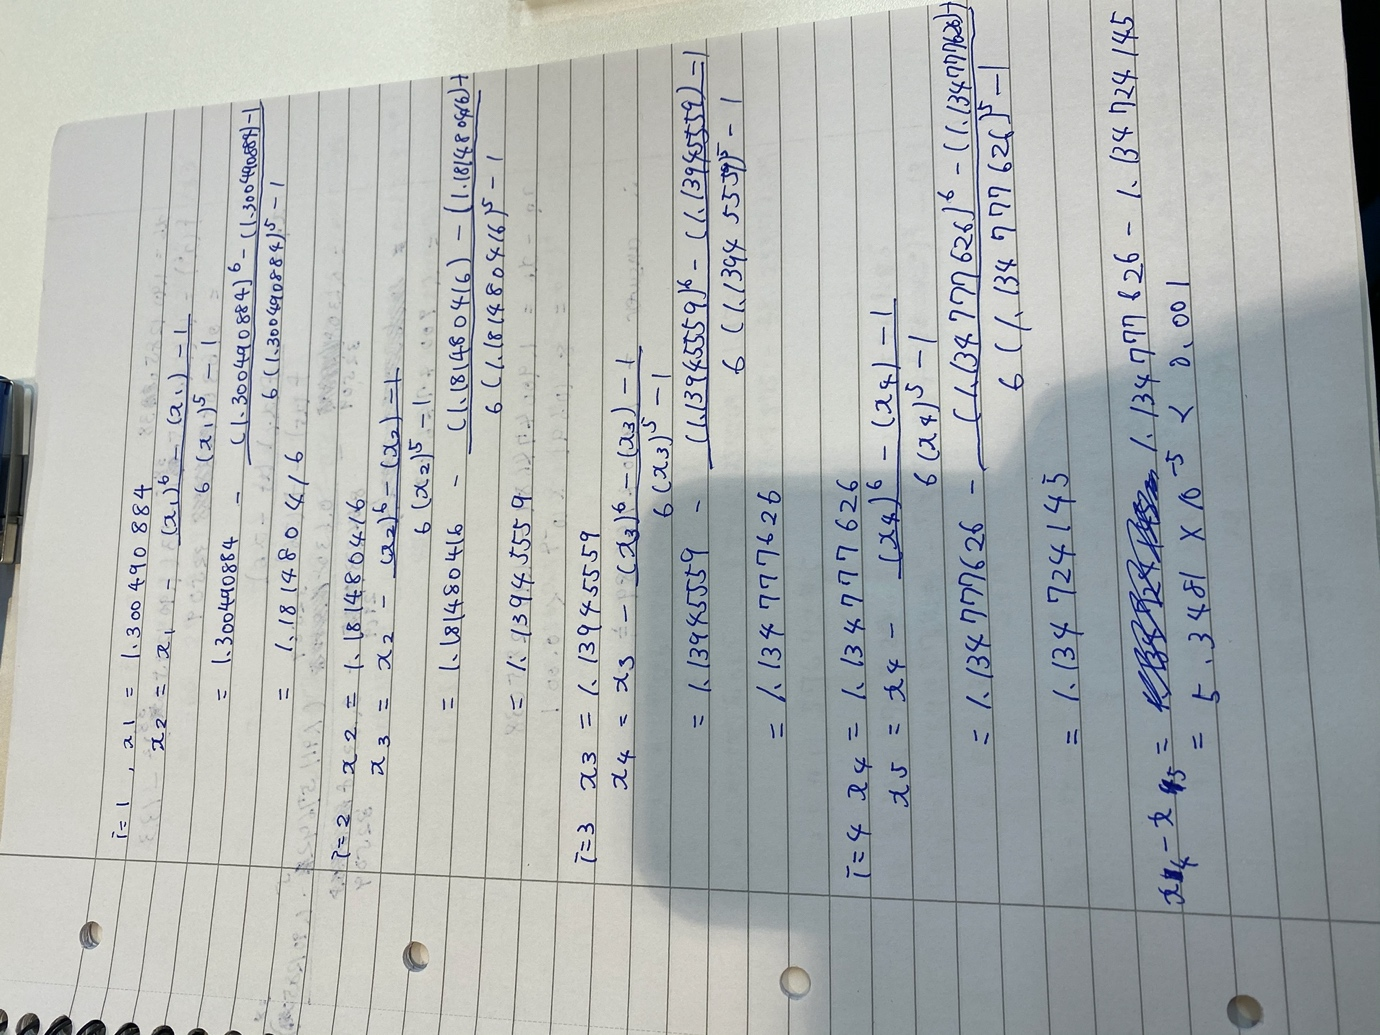 i=1, x1 = 1.300490884
x2 = x1 - (x1)^6 - (x1) - 1
6 (x1)^5 - 1
= 1.300490884 - (1.300490884)^6 - (1.300490884) - 1
6 (1.300490884)^5 - 1
= 1.181480416
i=2 x2 = 1.181480416
x3 = x2 - (x2)^6 - (x2) - 1
6 (x2)^5 - 1
= 1.181480416 - (1.181480416) - (1.181480416) - 1
6 (1.181480416)^5 - 1
= 1.139455559
i=3 x3 = 1.139455559
x4 = x3 - (x3)^6 - (x3) - 1
6 (x3)^5 - 1
= 1.139455559 - (1.139455559)^6 - (1.139455559) - 1
6 (1.139455559)^5 - 1
= 1.134777626
i=4 x4 = 1.134777626
x5 = x4 - (x4)^6 - (x4) - 1
6 (x4)^5 - 1
= 1.134777626 - (1.134777626)^6 - (1.134777626) - 1
6 (1.134777626)^5 - 1
= 1.134724145
x4 - x5 = 1.134777626 - 1.134724145
= 5.3481 × 10^-5 < 0.001